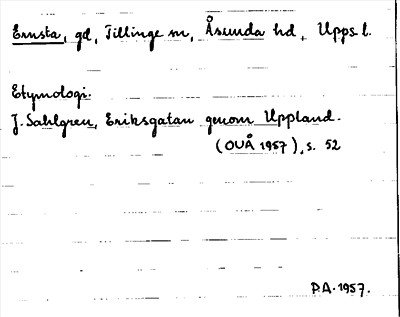 Ernsta, gd, Tillinge sn, Åsunda hd, Upps l.
Etymologi.
J. Sahlgren, Eriksgatan genom Uppland.
(OUÅ 1957), s. 52
P.A. 1957.